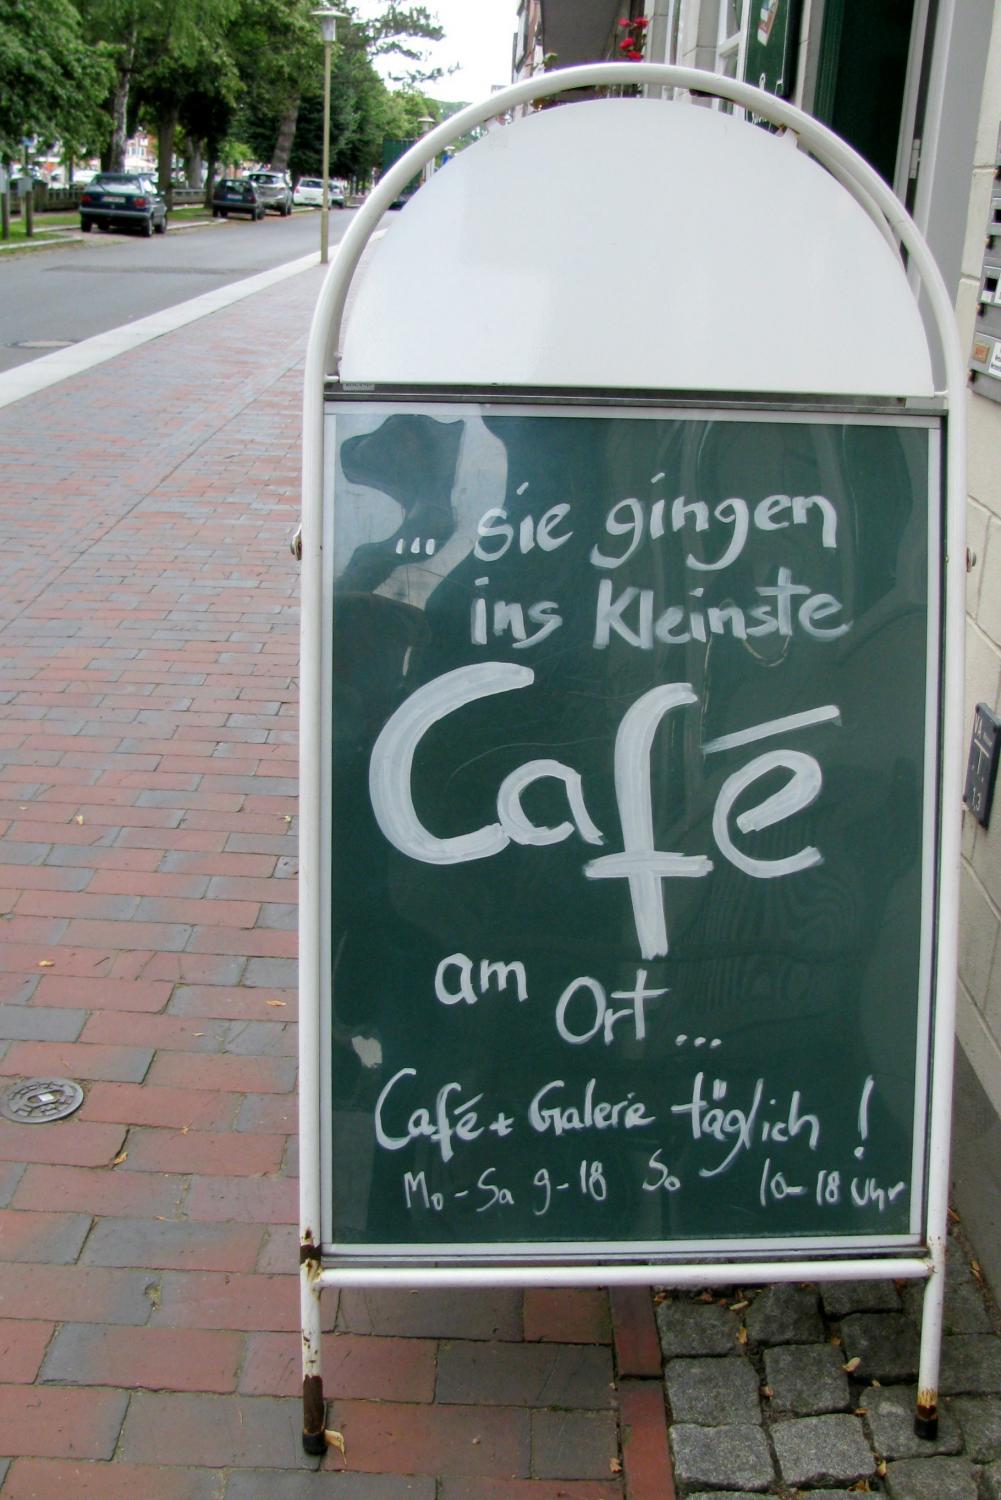 ... sie gingen
ins kleinste
Café
am Ort...
Café + Galerie täglich!
Mo-Sa 9-18 So 10-18 Uhr